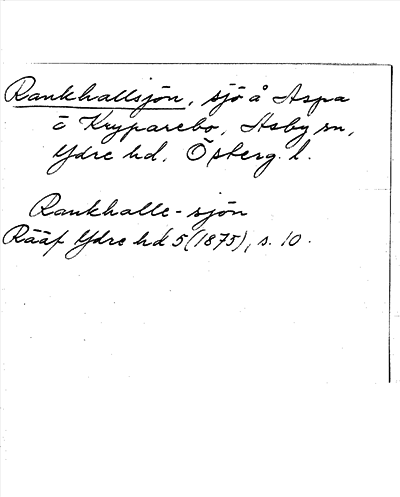 Rankhallsjön, sjö å Aspa
ö Kryparebo, Asby sn,
Ydre hd, Östergl.
Rankhalle-sjön
Rääf Ydre hd 5 (1875), s. 10.